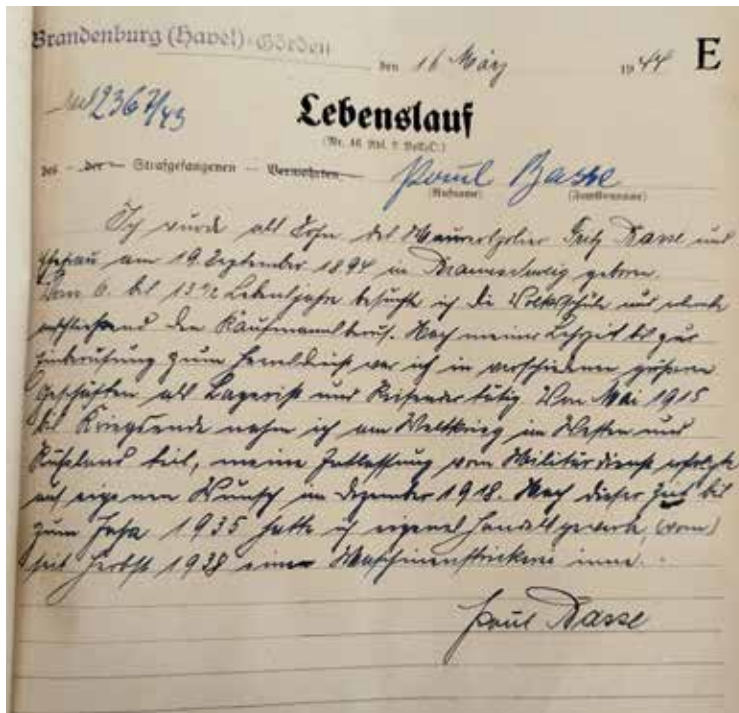 Brandenburg (Havel)-Görden
den 16 März 1944 E
2367/43
Lebenslauf
(Nr. 46 Abs. 2 VollzO.)
des – der – Strafgefangenen – Verwahrten – Paul Basse
(Rufname) (Familienname)
Ich wurde als Sohn des Fritz Basse und
Ehefrau am 19. September 1894 in Braunschweig geboren.
Vom 6. bis 13½ Lebensjahre besuchte ich die Volksschule und erlernte
anschließend den Kaufmannsberuf. Nach meiner Lehrzeit bis zur
Einberufung zum Heeresdienst war ich in verschiedenen größeren
Geschäften als Lagerist und Reisender tätig Von Mai 1915
bis Kriegsende nahm ich am Weltkrieg im Westen und
Rußland teil, meine Entlassung vom Militärdienst erfolgte
auf eigenen Wunsch im Dezember 1918. Nach dieser Zeit bis
zum Jahr 1935 hatte ich eigenes Handelsgewerbe (vom)
seit Herbst 1938 eine Maschinenstrickerei inne.
Paul Basse